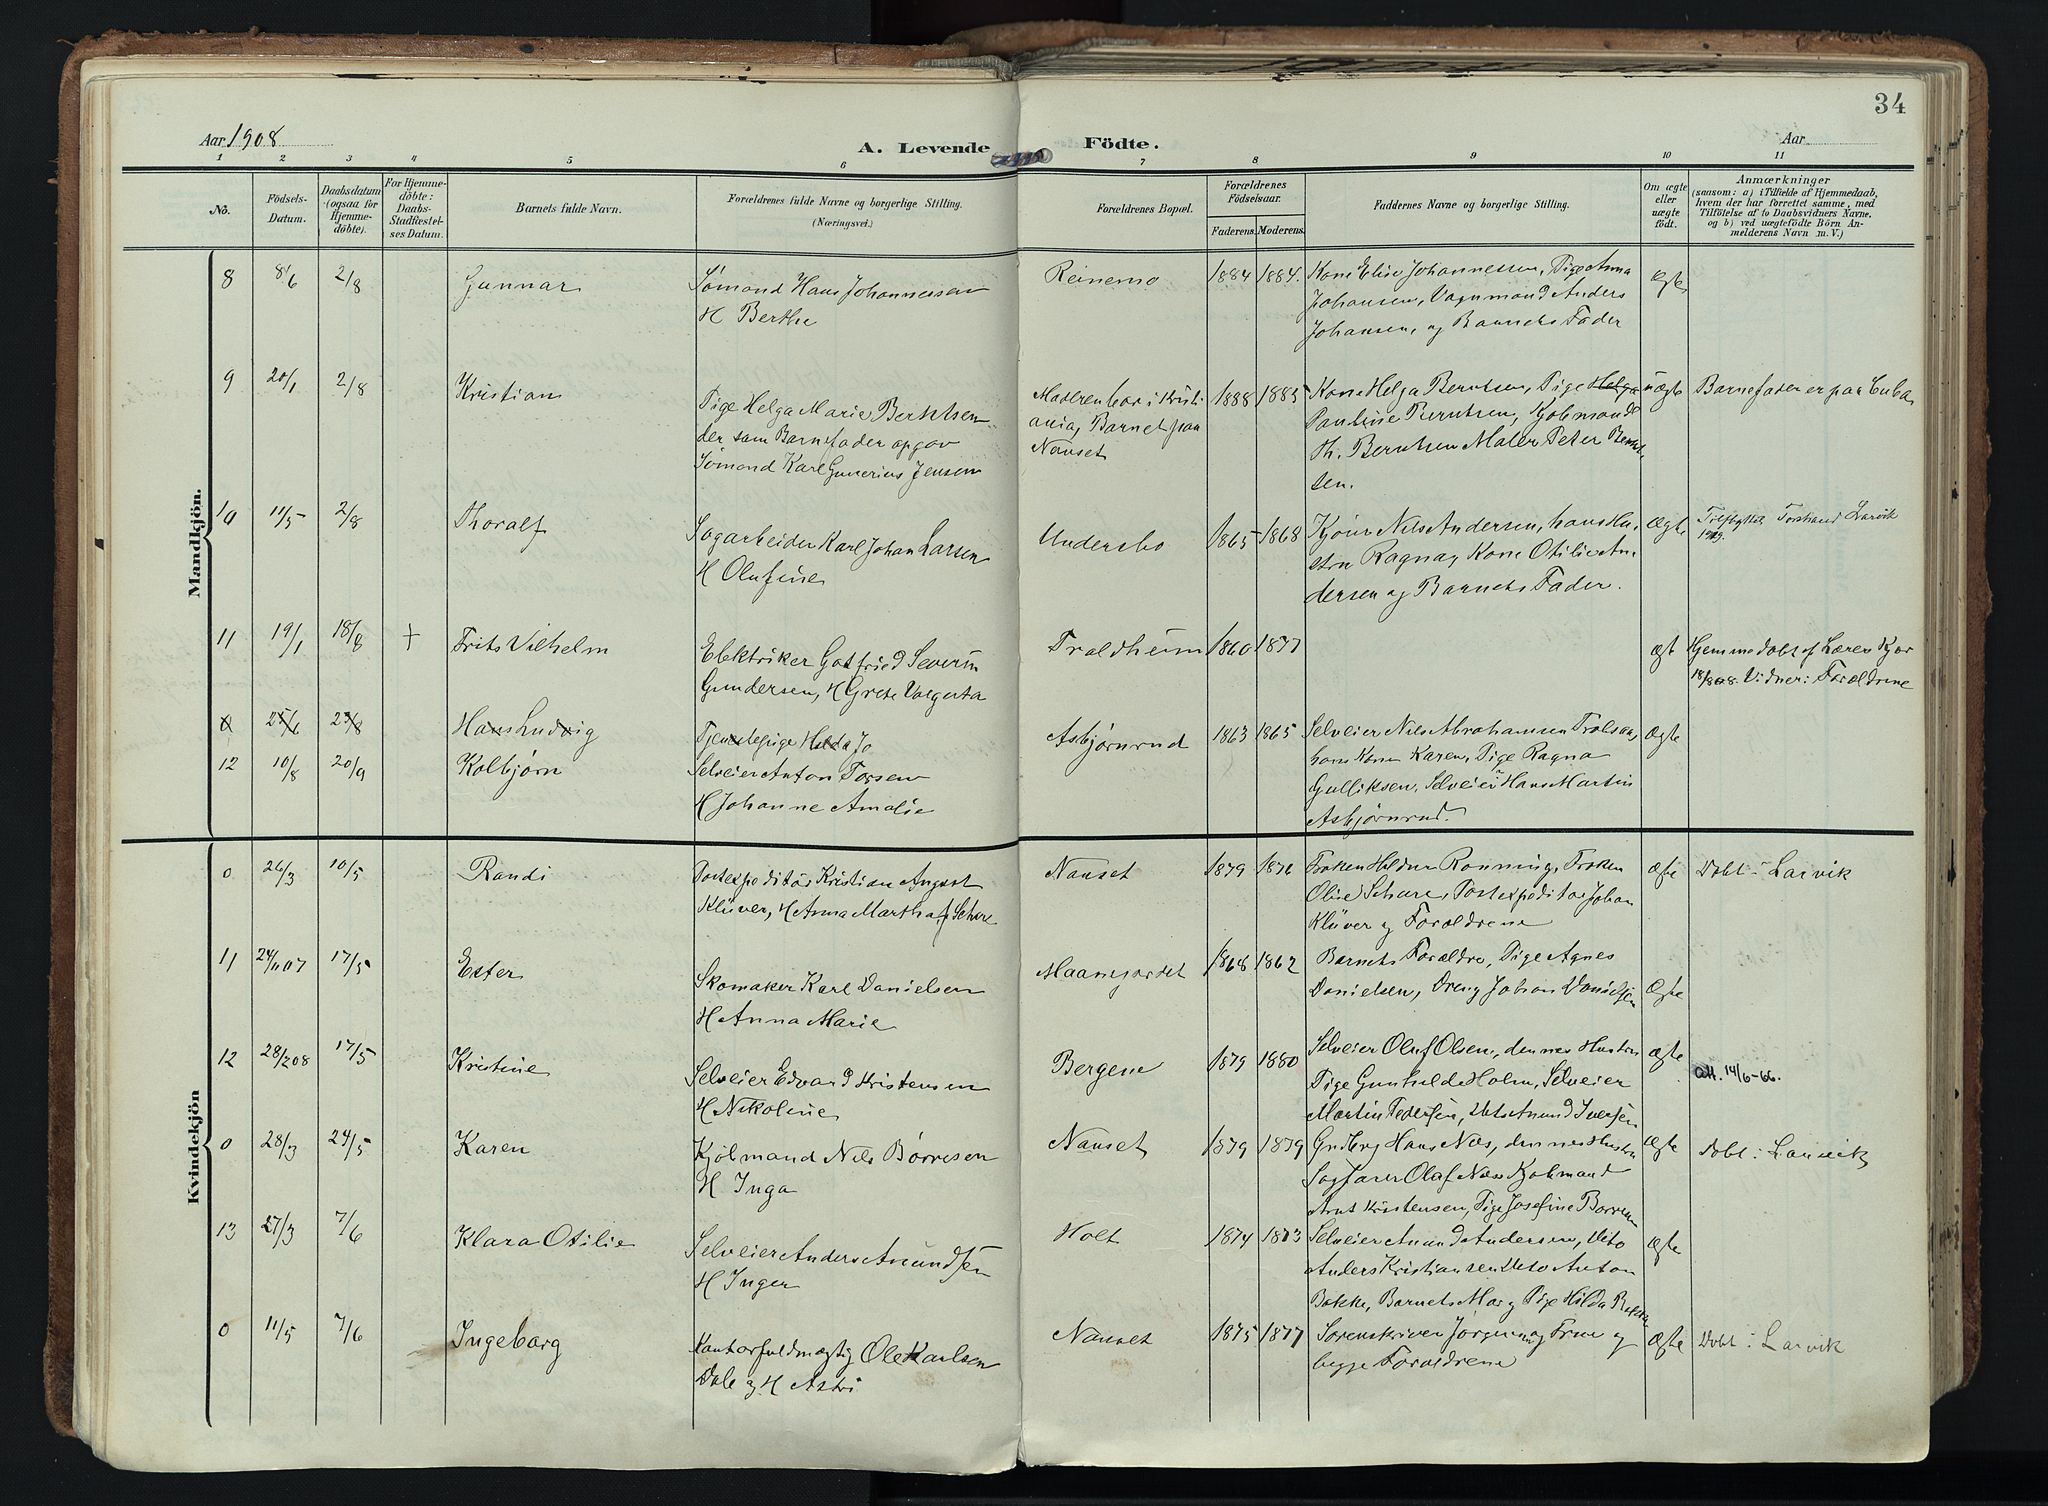 34
Aar 1908
A. Levende
Födte.
Aar
1 2 3 4 5 6 7 8 9 10 11
No.
Födsels-
Datum.
Daabsdatum
(ogsaa for
Hjemme-
döbte).
For Hjemme-
döbte:
Daabs-
Stadfestel-
ses Datum.
Barnets fulde Navn.
Forældrenes fulde Navne og borgerlige Stilling.
(Næringsvei.)
Forældrenes Bopæl.
Forældrenes
Födselsaar.
Faderens. Moderens.
Faddernes Navne og borgerlige Stilling.
Om ægte
eller
uægte
födt.
Anmærkninger
(saasom: a) i Tilfælde af Hjemmedaab,
hvem der har forrettet samme, med
Tilföielse af to Daabsvidners Navne,
og b) ved uægtefödte Börn An-
melderens Navn m. V.)
Mandkjön.
8 8/6 2/8 Gunnar
Sømand Hans Johannessen
H Berthe
Reinemo 1884 1884.
Kone Elise Johannessen, Pige Anna
Johansen, Vognmand Anders
Johansen, og Barnets Fader
Ægte
9 20/1 2/8 Kristian
Pige Helga Marie Berntsen
der som Barnefader opgav
Sømand Karl Gunerius Jensen
Moderen bor i Kristi
ania, Barnet paa
Nanset
1888 1885
Kone Helga Berntsen, Pige Helga
Pauline Berntsen, Kjølmand
Th. Berntsen Maler Peter Bernt-
sen.
uægte Barnefader er paa Cuba
10 11/5 2/8 Thoralf
Sagarbeider Karl Johan Larsen
H Olufine
Undersbo 1865 1868
Nils Andersen, hans Hu-
stru Ragna, Kone Otilie An-
dersen og Barnets Fader.
Ægte Larvik
11 19/1 18/8 + Frits Vilhelm
Elektriker Gotfried Severin
Gundersen, H Grete Valgerta
Traldheim 1860 1877
ægt Hjemmedøbt af Lærer
18/8 08. Vidner: Forældrene
0 25/6 23/8 Hans Ludvig
Tjenestepige Hilda Jo
12 10/8 20/9 Kolbjørn
Selveier Anton Torsen
H Johanne Amalie
Asbjørnrud 1863 1865
Selveier Nils Abrahamsen
hans Kone Karen, Pige Ragna
Gulliksen, Selveier Hans Martin
Asbjørnrud.
Ægte
Kvindekjön
0 26/3 10/5 Randi
Postexpeditör Kristian August
Klüver, H Anna Martha f.
Nanset 1879 1876
Frøken Rønning, Frøken
Olise Postexpeditør Johan
Klüver og Forældrene
ægte Døbt i Larvik
11 24/11 07 17/5 Ester
Skomaker Karl Danielsen
H Anna Marie
1868 1862
Barnets Forældre, Pige Agnes
Danielsen, Dreng Johan Danielsen
Ægte
12 28/2 08 17/5 Kristine
Selveier Edvard Kristensen
H Nikoline
Bergene 1879 1880
Selveier Oluf Olsen, dennes Hustru
Pige Gunhilde Holm, Selveier
Martin Pedersen, Amund Iversen
Ægte att. 14/6-66.
0 28/3 24/5 Karen
Kjølmand Nils Børresen
H Inga
Nanset 1879 1879
Hans Næs, dennes Hustru
Olaf Næss Kjølmand
Arnt Kristensen, Pige Josefine
Ægte Døbt i Larvik
13 27/3 7/6 Klara Otilie
Selveier Anders Amundsen
H Inger
Holt 1874 1873
Selveier Amund Andersen,
Anders Kristiansen Anton
Bakke, Barnets Mor og Pige Hilda Bakke
Ægte
0 11/5 7/6 Ingeborg
Kontorfuldmægtig Ole Karlsen
Dale og H Astri
Nanset 1875 1877
Sorenskriver Jørgensen, Frue og
begge Forældrene
Ægte Døbt i Larvik